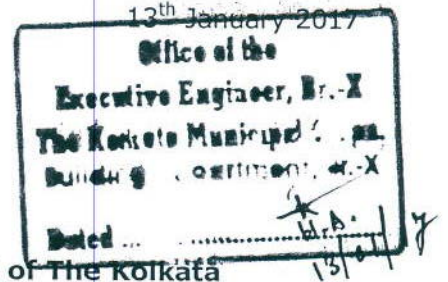 13th January 2017
Office of the
Executive Engineer, Br.-X
The Kolkata Municipal
Building Department, Br.-X
Dated ...
of The Kolkata